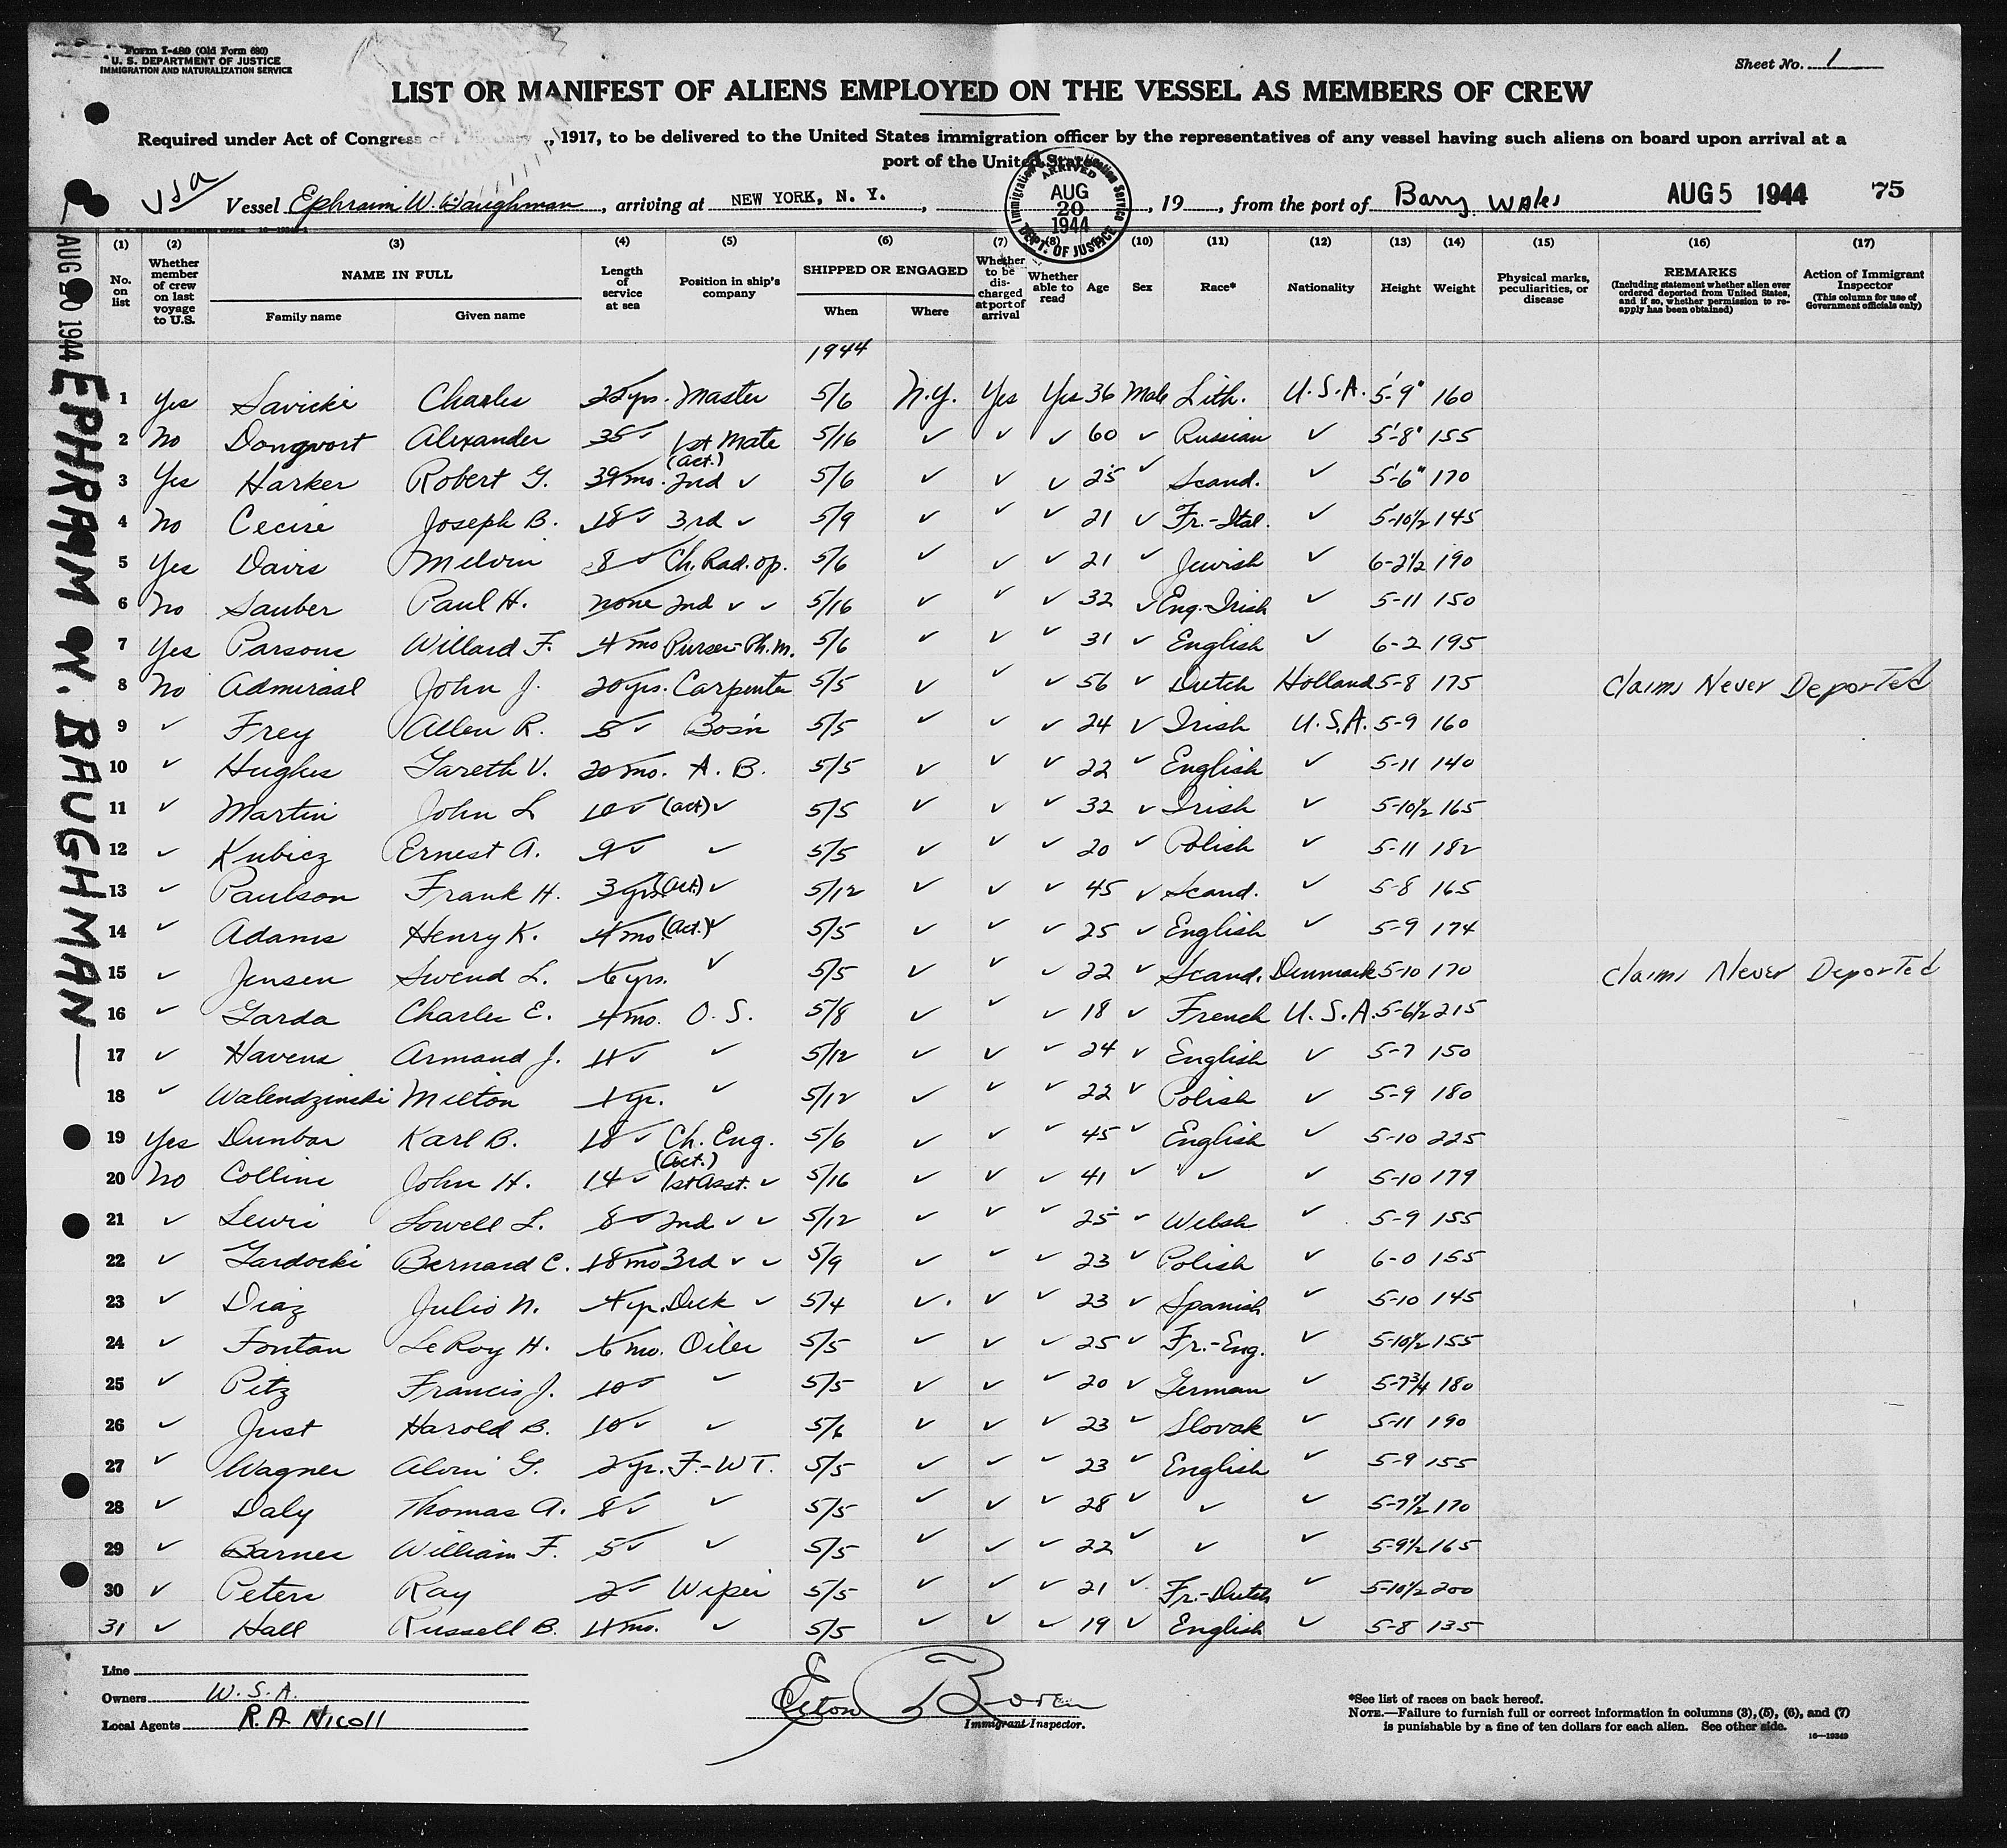 Form I-480 (Old Form 680)
U. S. DEPARTMENT OF JUSTICE
IMMIGRATION AND NATURALIZATION SERVICE
Sheet No. 1
LIST OR MANIFEST OF ALIENS EMPLOYED ON THE VESSEL AS MEMBERS OF CREW
Required under Act of Congress of , 1917, to be delivered to the United States immigration officer by the representatives of any vessel having such aliens on board upon arrival at a
port of the United States
Vessel Ephraim W. Baughman, arriving at NEW YORK, N. Y., , 19 , from the port of Barry Wales AUG 5 1944 75
Immigration Service ARRIVED AUG 20 1944 DEPT. OF JUSTICE
AUG 20 1944 EPHRAIM W. BAUGHMAN—
(1) (2) (3) (4) (5) (6) (7) (8) (10) (11) (12) (13) (14) (15) (16) (17)
No. on list
Whether member of crew on last voyage to U.S.
NAME IN FULL
Family name Given name
Length of service at sea
Position in ship's company
SHIPPED OR ENGAGED
When Where
Whether to be discharged at port of arrival
Whether able to read
Age Sex Race* Nationality Height Weight
Physical marks, peculiarities, or disease
REMARKS
(Including statement whether alien ever ordered deported from United States, and if so, whether permission to reapply has been obtained)
Action of Immigrant Inspector
(This column for use of Government officials only)
1944
1 Yes Savicki Charles 25 yrs. Master 5/6 N.Y. Yes Yes 36 Male Lith. U.S.A. 5'-9" 160
2 No Dongvort Alexander 35 ✓ 1st Mate 5/16 ✓ ✓ ✓ 60 ✓ Russian ✓ 5'-8" 155
3 Yes Harker Robert G. 39 mo. (act.) 2nd ✓ 5/6 ✓ ✓ ✓ 25 ✓ Scand. ✓ 5'-6" 170
4 No Cecire Joseph B. 18 ✓ 3rd ✓ 5/9 ✓ ✓ ✓ 21 ✓ Fr.-Ital. ✓ 5-10½ 145
5 Yes Davis Melvin 8 ✓ Ch. Rad. op. 5/6 ✓ ✓ ✓ 21 ✓ Jewish ✓ 6-2½ 190
6 No Sauber Paul H. none 2nd ✓ ✓ 5/16 ✓ ✓ ✓ 32 ✓ Eng.-Irish ✓ 5-11 150
7 Yes Parsons Willard F. 4 mo Purser-Ph.M. 5/6 ✓ ✓ ✓ 31 ✓ English ✓ 6-2 195
8 No Admiraal John J. 20 yrs. Carpenter 5/5 ✓ ✓ ✓ 56 ✓ Dutch Holland 5-8 175 Claims Never Deported
9 ✓ Frey Allen R. 5 ✓ Bos'n 5/5 ✓ ✓ ✓ 24 ✓ Irish U.S.A. 5-9 160
10 ✓ Hughes Gareth V. 20 mo. A. B. 5/5 ✓ ✓ ✓ 22 ✓ English ✓ 5-11 140
11 ✓ Martin John L 10 ✓ (act) ✓ 5/5 ✓ ✓ ✓ 32 ✓ Irish ✓ 5-10½ 165
12 ✓ Kubicz Ernest A. 9 ✓ ✓ 5/5 ✓ ✓ ✓ 20 ✓ Polish ✓ 5-11 182
13 ✓ Paulson Frank H. 3 yrs (act.) ✓ 5/12 ✓ ✓ ✓ 45 ✓ Scand. ✓ 5-8 165
14 ✓ Adams Henry K. 4 mo. (act.) ✓ 5/5 ✓ ✓ ✓ 25 ✓ English ✓ 5-9 174
15 ✓ Jensen Swend L. 6 yrs. ✓ 5/5 ✓ ✓ ✓ 22 ✓ Scand. Denmark 5-10 170 Claims Never Deported
16 ✓ Garda Charles E. 4 mo. O. S. 5/8 ✓ ✓ ✓ 18 ✓ French U.S.A. 5-6½ 215
17 ✓ Havens Armand J. 11 ✓ ✓ 5/12 ✓ ✓ ✓ 24 ✓ English ✓ 5-7 150
18 ✓ Walendzinski Milton 1 yr. ✓ 5/12 ✓ ✓ ✓ 22 ✓ Polish ✓ 5-9 180
19 Yes Dunbar Karl B. 18 ✓ Ch. Eng. 5/6 ✓ ✓ ✓ 45 ✓ English ✓ 5-10 225
20 No Collins John H. 14 ✓ (Act.) 1st Asst. ✓ 5/16 ✓ ✓ ✓ 41 ✓ ✓ ✓ 5-10 179
21 ✓ Lewis Lowell L. 8 ✓ 2nd ✓ ✓ 5/12 ✓ ✓ ✓ 25 ✓ Welsh ✓ 5-9 155
22 ✓ Gardocki Bernard C. 18 mo 3rd ✓ ✓ 5/9 ✓ ✓ ✓ 23 ✓ Polish ✓ 6-0 155
23 ✓ Diaz Julio N. 4 yr. Deck ✓ 5/4 ✓ ✓ ✓ 23 ✓ Spanish ✓ 5-10 145
24 ✓ Fontan LeRoy H. 6 mo. Oiler 5/5 ✓ ✓ ✓ 25 ✓ Fr.-Eng. ✓ 5-10½ 155
25 ✓ Pitz Francis J. 10 ✓ ✓ 5/5 ✓ ✓ ✓ 20 ✓ German ✓ 5-7¾ 180
26 ✓ Just Harold B. 10 ✓ ✓ 5/6 ✓ ✓ ✓ 23 ✓ Slovak ✓ 5-11 190
27 ✓ Wagner Alvin G. 2 yr. F.-W T. 5/5 ✓ ✓ ✓ 23 ✓ English ✓ 5-9 155
28 ✓ Daly Thomas A. 8 ✓ ✓ 5/5 ✓ ✓ ✓ 28 ✓ ✓ ✓ 5-7½ 170
29 ✓ Barnes William F. 5 ✓ ✓ 5/5 ✓ ✓ ✓ 22 ✓ ✓ ✓ 5-9½ 165
30 ✓ Peters Ray 2 ✓ Wiper 5/5 ✓ ✓ ✓ 21 ✓ Fr.-Dutch ✓ 5-10½ 200
31 ✓ Hall Russell B. 11 mo. ✓ 5/5 ✓ ✓ ✓ 19 ✓ English ✓ 5-8 135
Line
Owners W. S. A.
Local Agents R.A. Nicoll
Immigrant Inspector.
*See list of races on back hereof.
NOTE.—Failure to furnish full or correct information in columns (3), (5), (6), and (7)
is punishable by a fine of ten dollars for each alien. See other side.
16—19349